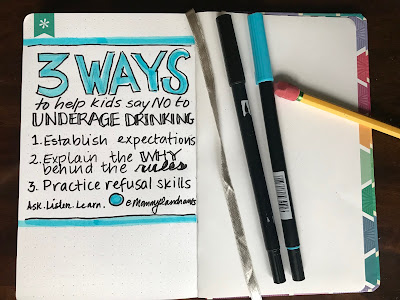 3 WAYS
to help kids say NO to
UNDERAGE DRINKING
1. Establish expectations
2. Explain the WHY
behind the rules
3. Practice refusal skills
Ask. Listen. Learn.